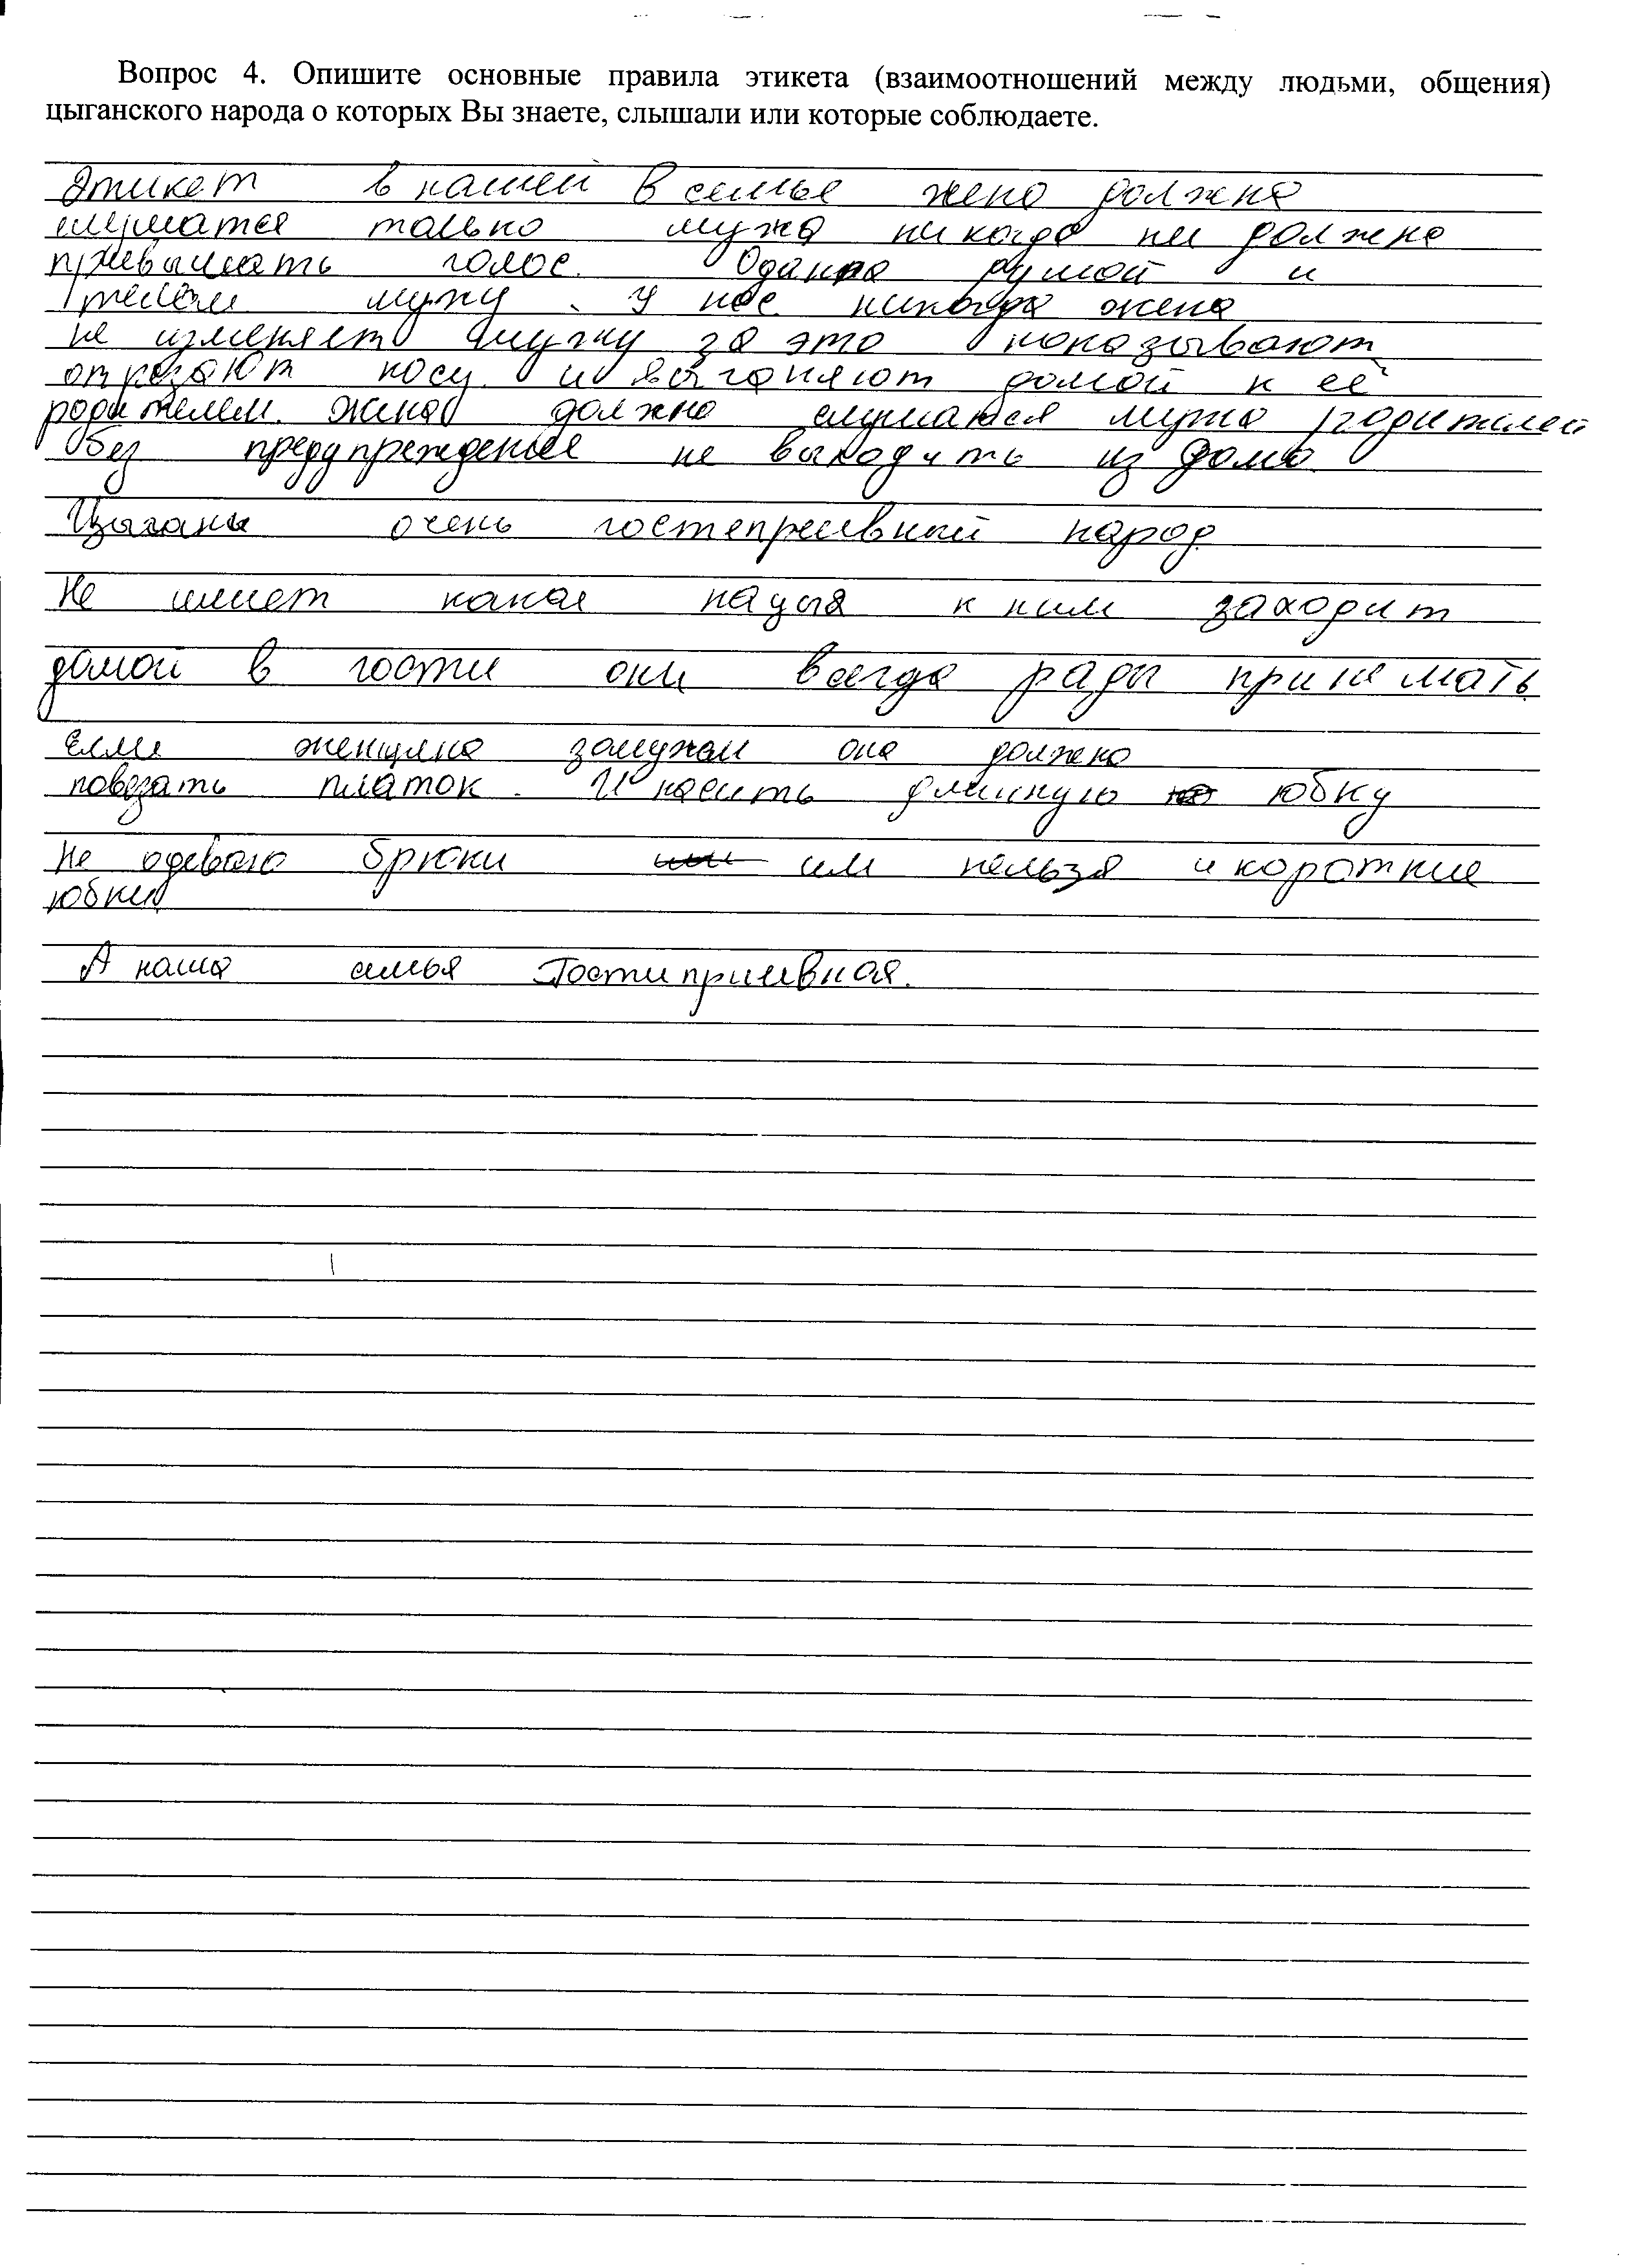 Вопрос 4. Опишите основные правила этикета (взаимоотношений между людьми, общения)
цыганского народа о которых Вы знаете, слышали или которые соблюдаете.
Этикет в нашей в семье жена должна
слушатся только мужа никогда не должна
превышать голос. Одана душой и
телом мужу. У нас никогда жена
не изменяет мужу за это наказывают
отрезают косу и выгоняют домой к её
родителем. Жена должна слушаюся мужа родителей
без предупреждение не выходить из дома.
Цыганы очень гостепреимвный народ
Не имеет какая нацыя к ним заходит
домой в гости они всегда рады принемать.
Если женщина замужем она должна
повезать платок. И насить длинную юбку
Не одеваю брюки им нельзя и короткие
юбки
А наша семья Гостипримвная.